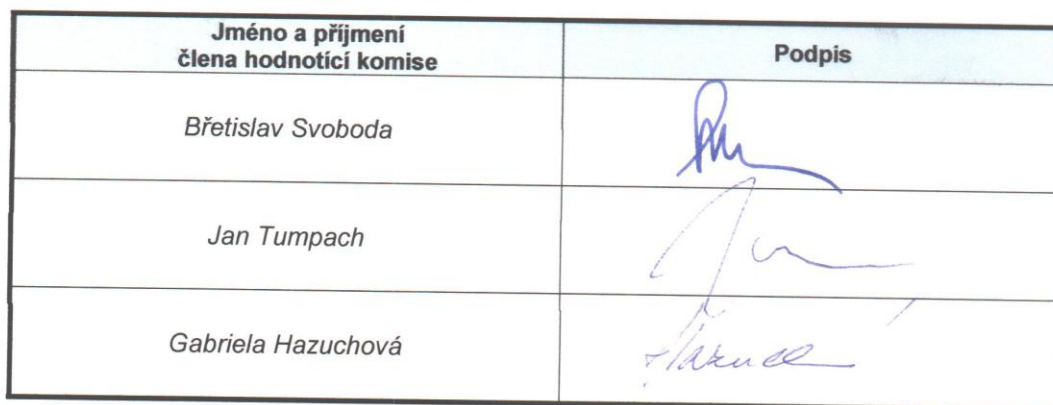 Jméno a příjmení
člena hodnotící komise
Podpis
Břetislav Svoboda
Jan Tumpach
Gabriela Hazuchová